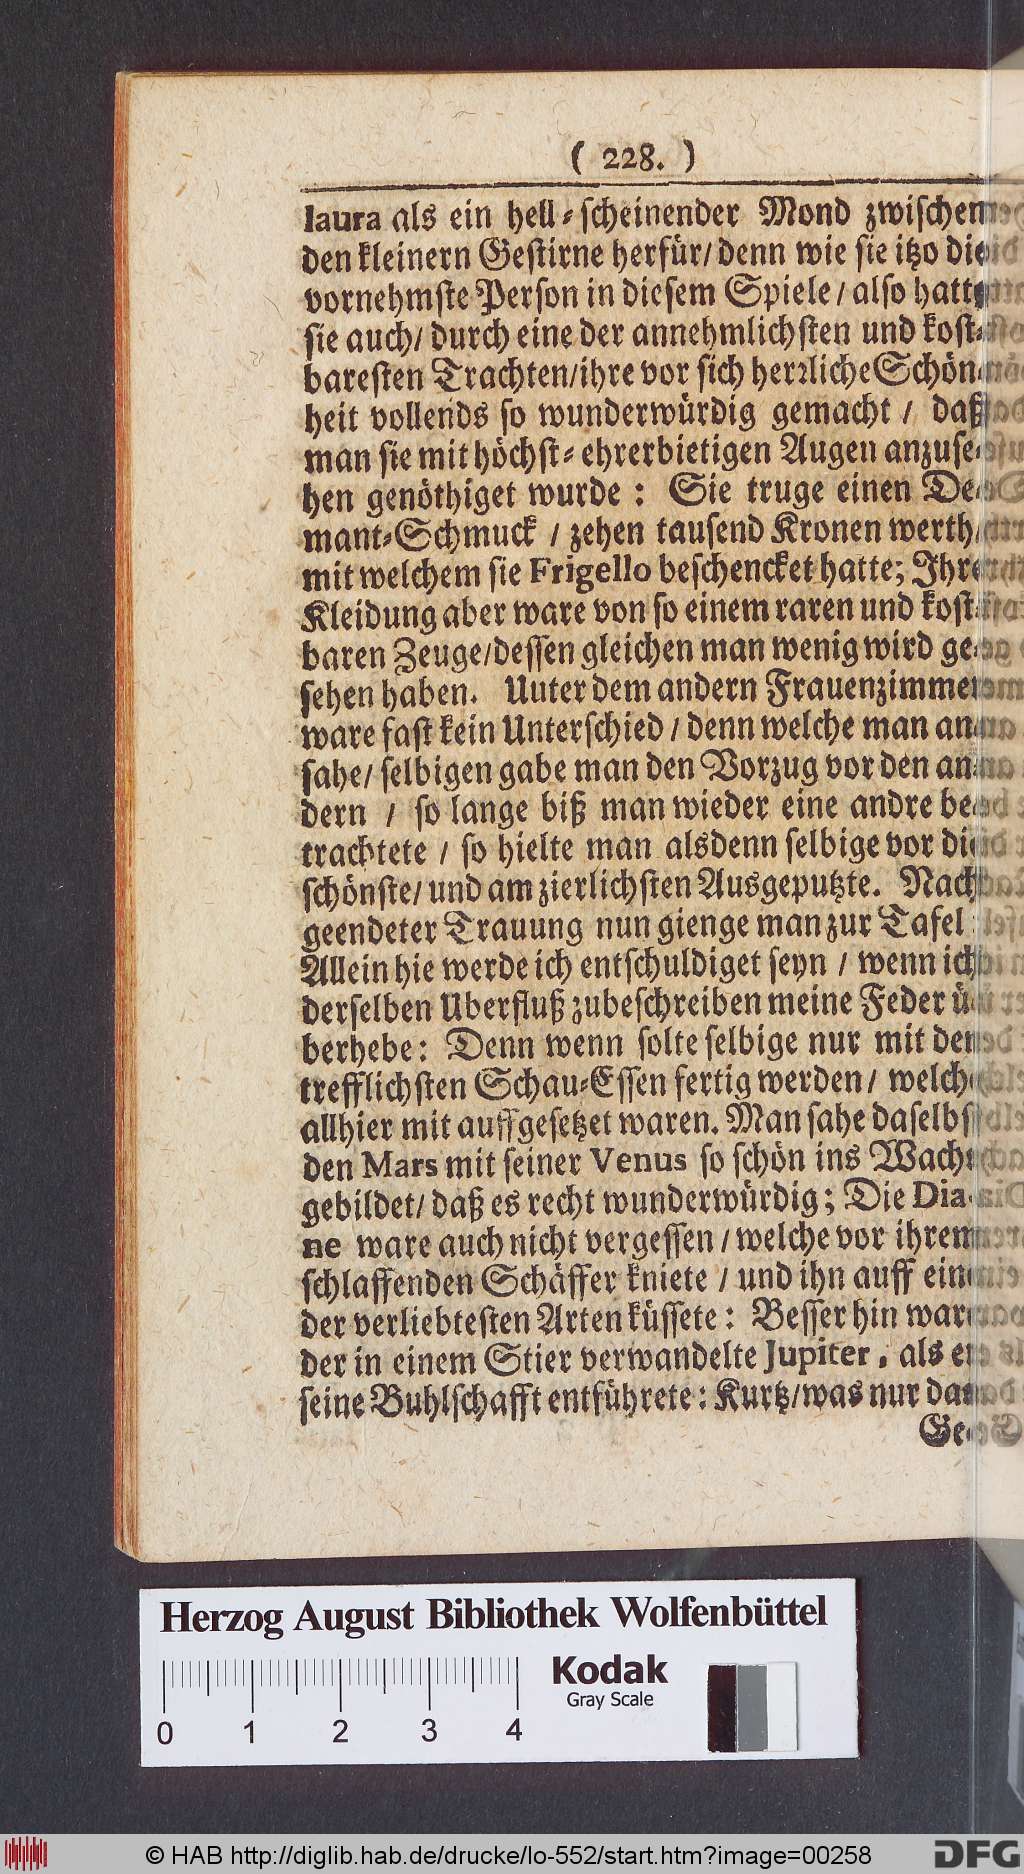 ( 228. )
laura als ein hell-scheinender Mond zwischen
den kleinern Gestirne herfür/ denn wie sie itzo die
vornehmste Person in diesem Spiele / also hatte
sie auch/ durch eine der annehmlichsten und kost-
baresten Trachten/ihre vor sich herrliche Schön-
heit vollends so wunderwürdig gemacht / daß
man sie mit höchst-ehrerbietigen Augen anzuse-
hen genöthiget wurde : Sie truge einen De-
mant-Schmuck / zehen tausend Kronen werth/
mit welchem sie Frigello beschencket hatte; Ihre
Kleidung aber ware von so einem raren und kost-
baren Zeuge/dessen gleichen man wenig wird ge-
sehen haben. Unter dem andern Frauenzimmer
ware fast kein Unterschied / denn welche man an-
sahe/ selbigen gabe man den Vorzug vor den an-
dern / so lange biß man wieder eine andre be-
trachtete / so hielte man alsdenn selbige vor die
schönste/ und am zierlichsten Ausgeputzte. Nach
geendeter Trauung nun gienge man zur Tafel :
Allein hie werde ich entschuldiget seyn / wenn ich
derselben Uberfluß zubeschreiben meine Feder ü-
berhebe: Denn wenn solte selbige nur mit den
trefflichsten Schau-Essen fertig werden/ welche
allhier mit auffgesetzet waren. Man sahe daselbst
den Mars mit seiner Venus so schön ins Wachs
gebildet/ daß es recht wunderwürdig; Die Dia-
ne ware auch nicht vergessen / welche vor ihrem
schlaffenden Schäffer kniete / und ihn auff eine
der verliebtesten Arten küssete : Besser hin ware
der in einem Stier verwandelte Jupiter, als er
seine Buhlschafft entführete: Kurtz/was nur das
Ge-
Herzog August Bibliothek Wolfenbüttel
Kodak
Gray Scale
0 1 2 3 4
© HAB http://diglib.hab.de/drucke/lo-552/start.htm?image=00258
DFG